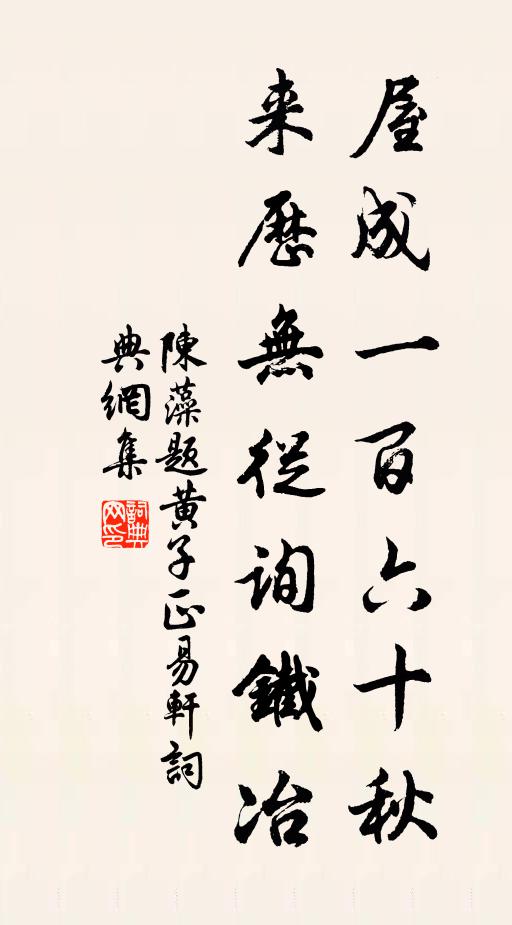 屋成一百六十秋
来歷無從詢鐵冶
陳藻題黃子正易軒詞
典網集
詞典
网印